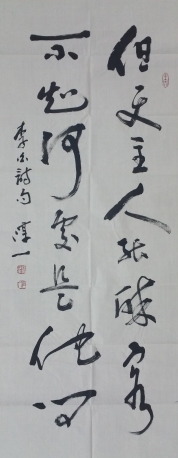 但使主人能醉客
不知何处是他乡
李白诗句 淳一